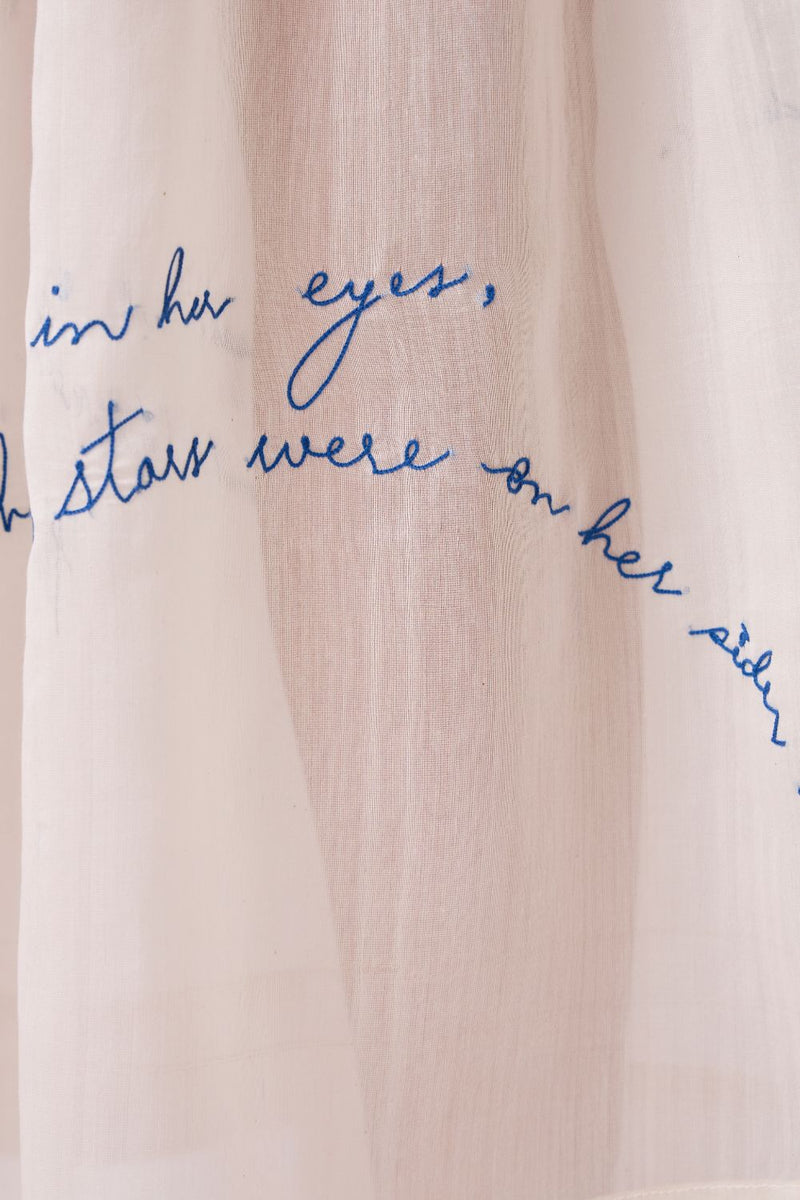 in her eyes,
h stars were on her side,